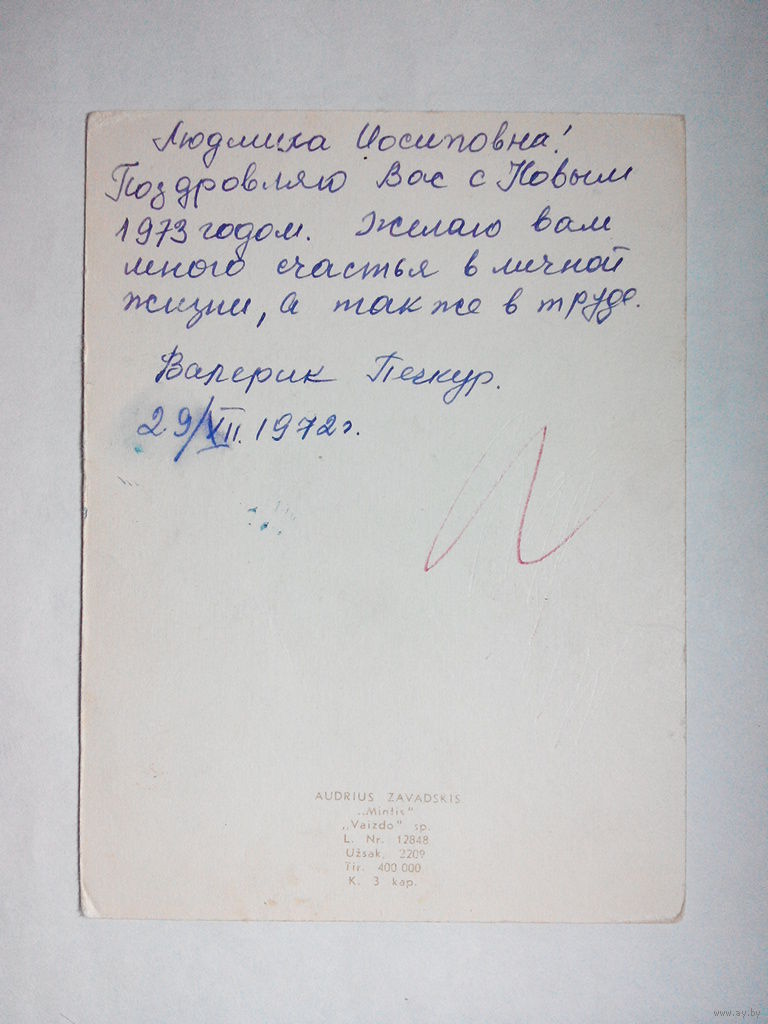 Людмила Иосиповна!
Поздровляю Вас с Новым
1973 годом. Желаю вам
много счастья в личной
жизни, а также в труде.
Валерик
29/XII. 1972г.
AUDRIUS ZAVADSKIS
„Mintis"
„Vaizdo" sp.
L. Nr. 12848
Užsak. 2209
Tir. 400 000
K. 3 kap.
www.ay.by